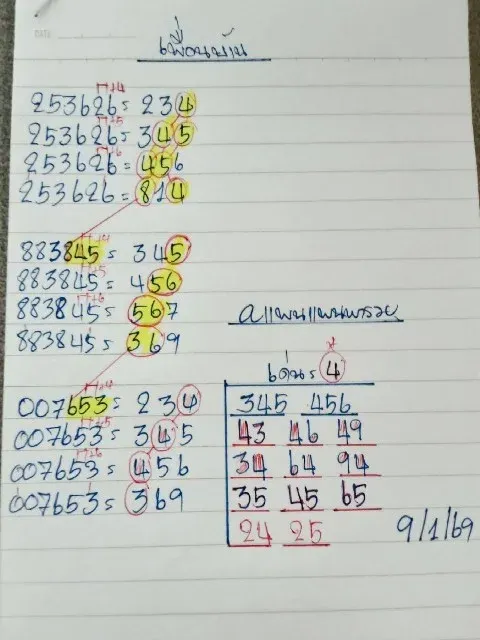 DATE
เพื่อนบ้าน
+4
253626 = 234
+5
253626 = 345
+6
253626 = 456
253626 = 814
+4
883845 = 345
+5
883845 = 456
+6
883845 = 567
883845 = 369
+4
007653 = 234
+5
007653 = 345
+6
007653 = 456
007653 = 369
เด่น = 4
345 456
43 46 49
34 64 94
35 45 65
24 25
9/1/69